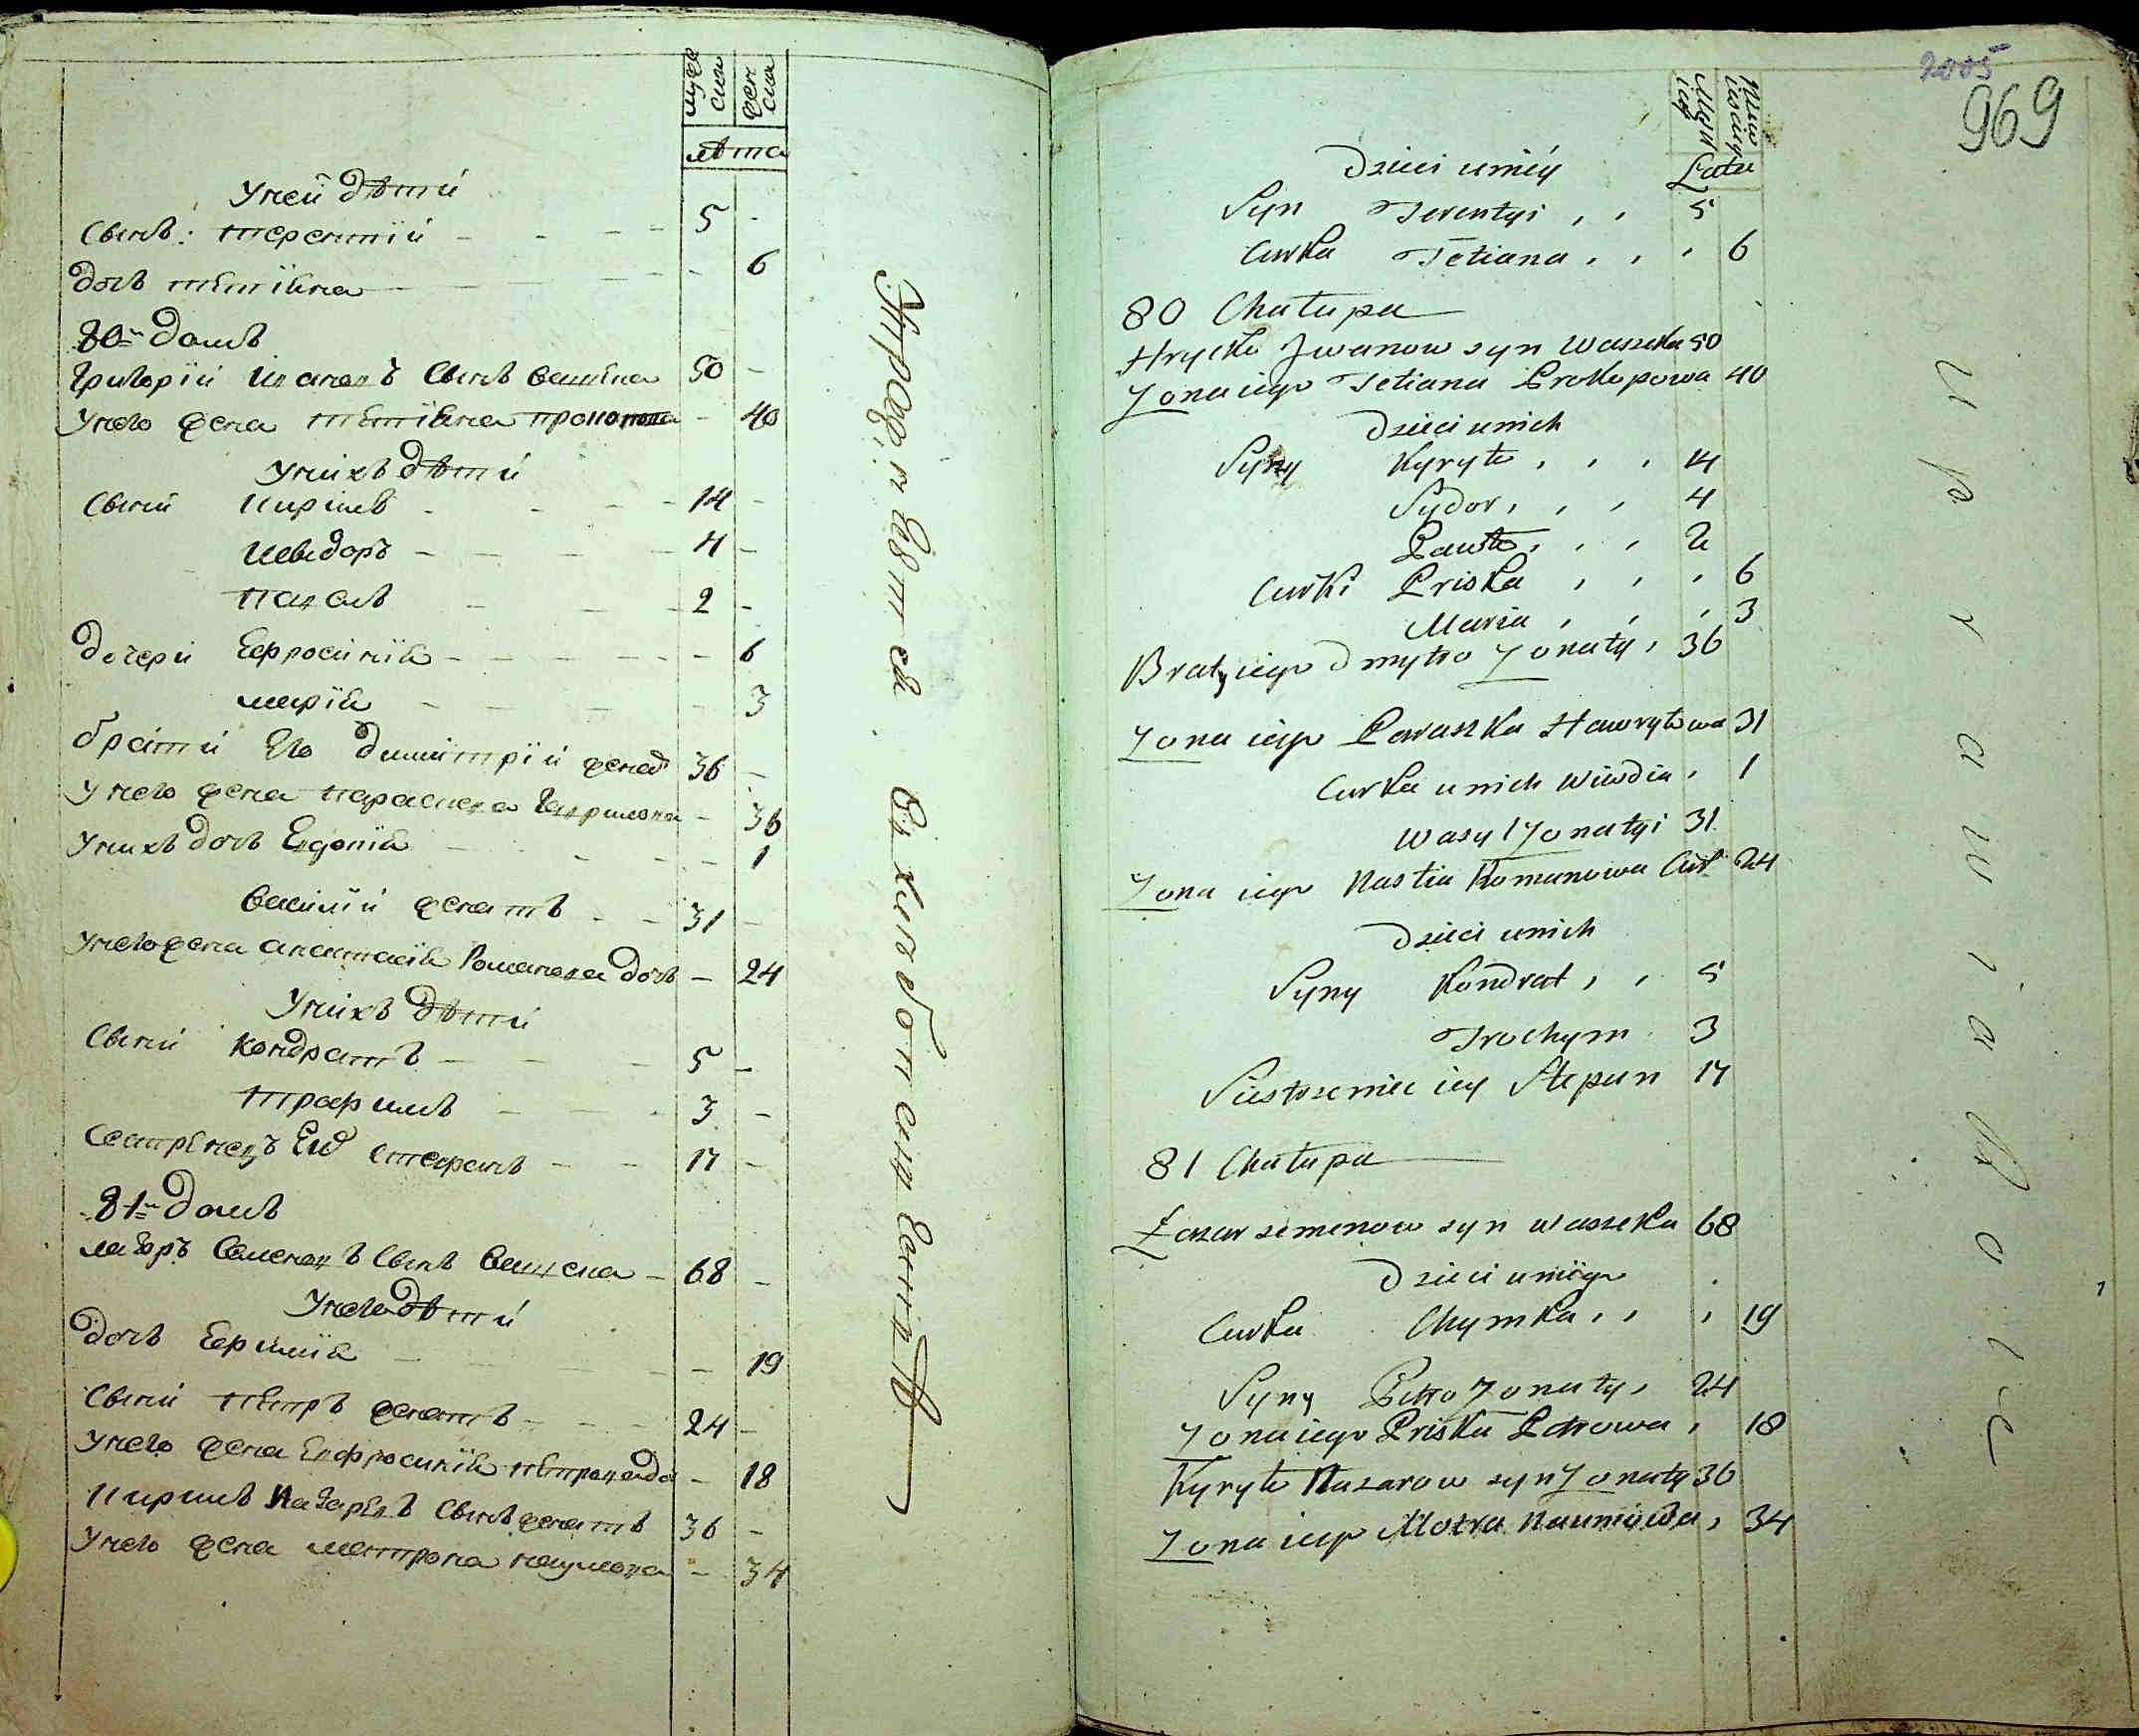 муже
ска
женс
ка
лѣта
У ней дѣти
Сынъ: терентїй - - - - 5 -
дочь татїана - - - - - 6
80й домъ
Григорїй Ивановъ Сынъ Вашека 50 -
У него жена татїана прокопова - 40
У нихъ дѣти
Сыни Кирилъ - - - 14 -
Исидоръ - - - 4 -
павелъ - - - 2 -
дочери Ефросинїя - - - - - 6
марїя - - - - 3
братъ Его димитрїй женатъ 36 -
У него жена параскева Гаврилова - 36
У нихъ дочь Евдокїя - - - - 1
Василїй женатъ - - 31 -
У него жена анастасїя Романова дочь - 24
У нихъ дѣти
Сыни Кондратъ - - - 5 -
трофимъ - - - 3 -
Сестренецъ Его стефанъ - - 17 -
81й домъ
лазоръ Семеновъ Сынъ Вашека - 68 -
У него дѣти
дочь Ефимїя - - - - 19
Сыни петръ женатъ - - - 24 -
У него жена Евфросинїя петрова до - 18
Кирилъ Назаревъ Сынъ женатъ 36 -
У него жена матрона наумова - 34
2005
969
Męsk
iej
Niew
iesciey
Lata
Dzieci u niéy
Syn Terentyi , , 5
Curka Tetiana , , , 6
80 Chałupa
Hryćko Jwanow syn Waszeka 50
Zona iego Tetiana Prokopowa 40
Dzieci u nich
Syny Kyryło , , , 14
Sydor , , , 4
Pawło , , , 2
Curki Priska , , , 6
Maria , , , 3
Brat iego Dmytro Zonaty , 36
Zona iego Paraszka Hawryłowa 31
Curka u nich Wiwdia , 1
Wasyl Zonatyi 31
Zona iego Nastia Romanowa Cur 24
Dzieci u nich
Syny Kondrat , , 5
Trochym 3
Siestrzeniec iey Stepan 17
81 Chałupa
Łazar Semenow syn Waszeka 68
Dzieci u niego
Curka Chymka , , , 19
Syny Petro Zonaty , 24
Zona iego Priska Petrowa , 18
Kyryło Nazarow syn Zonaty 36
Zona iego Motra Naumowa , 34